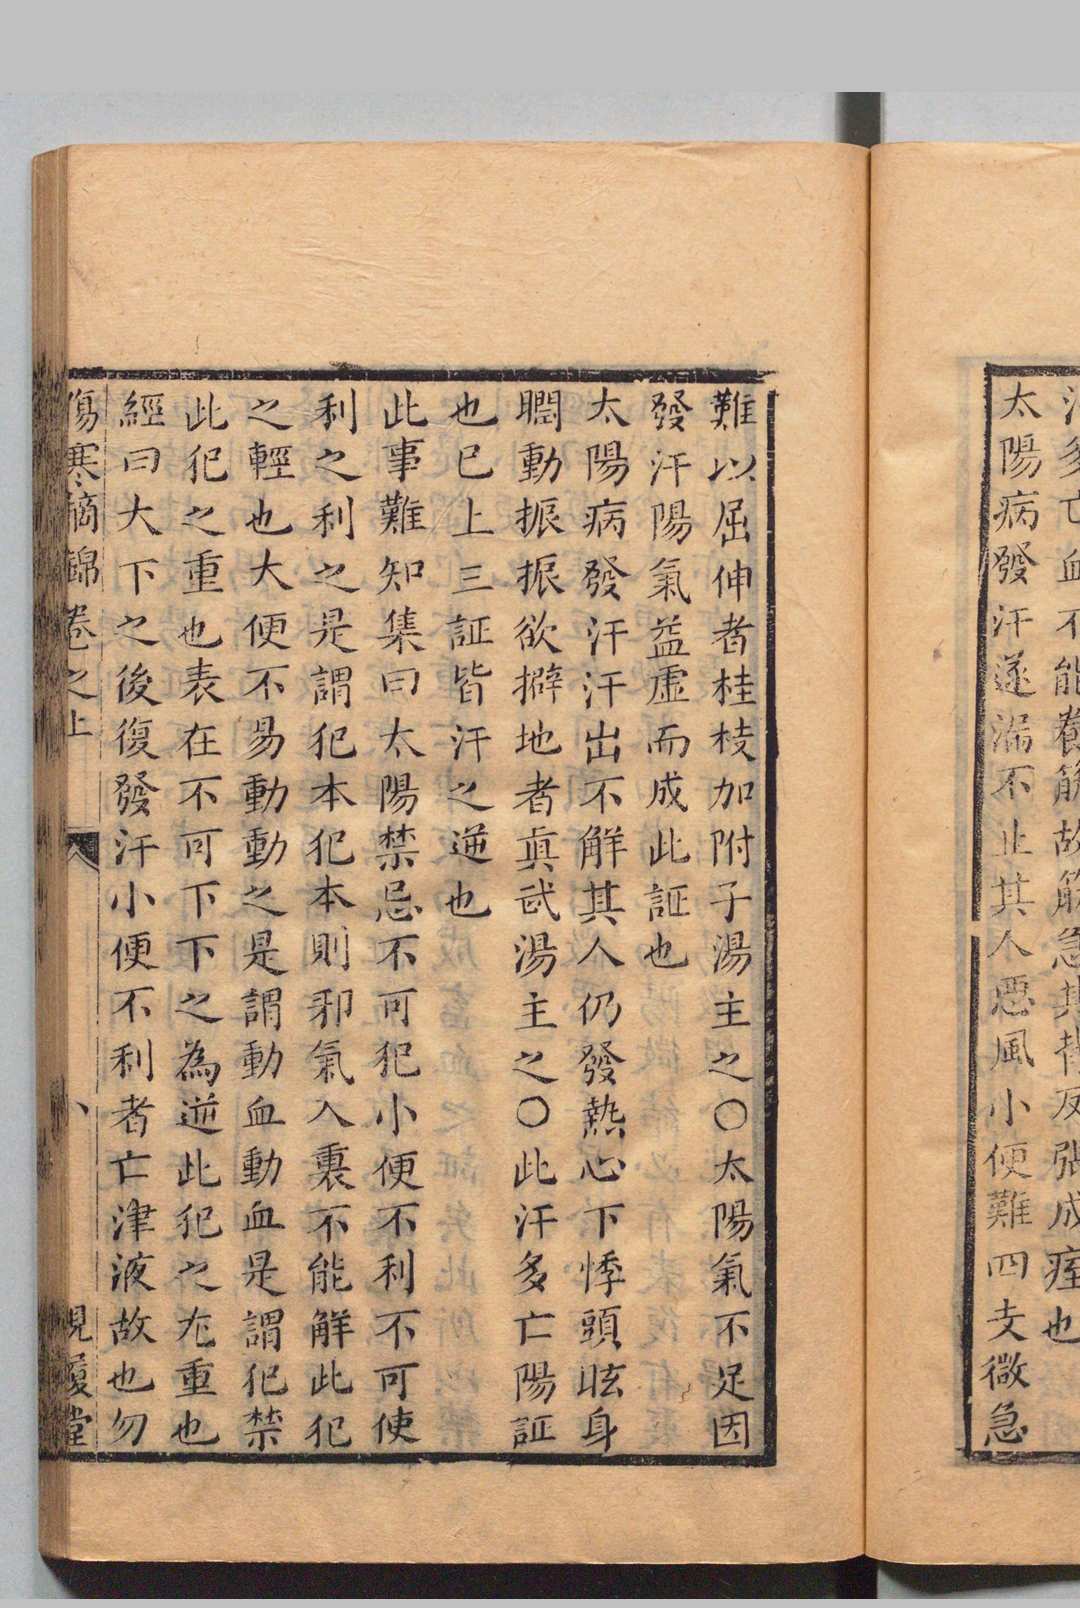 太陽病發汗遂漏不止其人惡風小便難四支微急
難以屈伸者桂枝加附子湯主之〇太陽氣不足因
發汗陽氣益虛而成此証也
太陽病發汗汗出不解其人仍發熱心下悸頭眩身
瞤動振振欲擗地者真武湯主之〇此汗多亡陽証
也已上三証皆汗之逆也
此事難知集曰太陽禁忌不可犯小便不利不可使
利之利之是謂犯本犯本則邪氣入裏不能解此犯
之輕也大便不易動動之是謂動血動血是謂犯禁
此犯之重也表在不可下下之為逆此犯之尤重也
經曰大下之後復發汗小便不利者亡津液故也勿
傷寒摘錦卷之上 八 視履堂